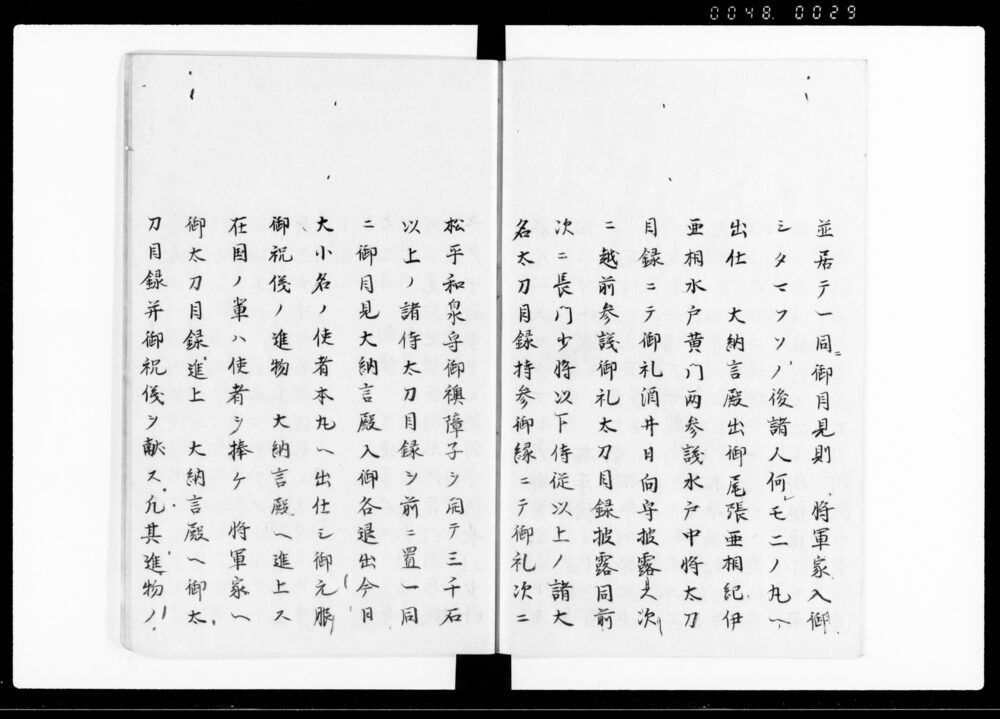 0048. 0029
並居テ一同ニ御目見則　将軍家入御
シタマフソノ後諸人何モ二ノ丸ヘ
出仕　大納言殿出御尾張亜相紀伊
亜相水戸黄門両参議水戸中将太刀
目録ニテ御礼酒井日向守披露ス次
ニ越前参議御礼太刀目録披露同前
次ニ長門少将以下侍従以上ノ諸大
名太刀目録持参御縁ニテ御礼次ニ
松平和泉守御襖障子ヲ開テ三千石
以上ノ諸侍太刀目録ヲ前ニ置一同
ニ御目見大納言殿入御各退出今日
大小名ノ使者本丸ヘ出仕シ御元服
御祝儀ノ進物　大納言殿ヘ進上ス
在国ノ輩ハ使者ヲ捧ケ　将軍家ヘ
御太刀目録進上　大納言殿ヘ御太
刀目録并御祝儀ヲ献ス凡其進物ノ